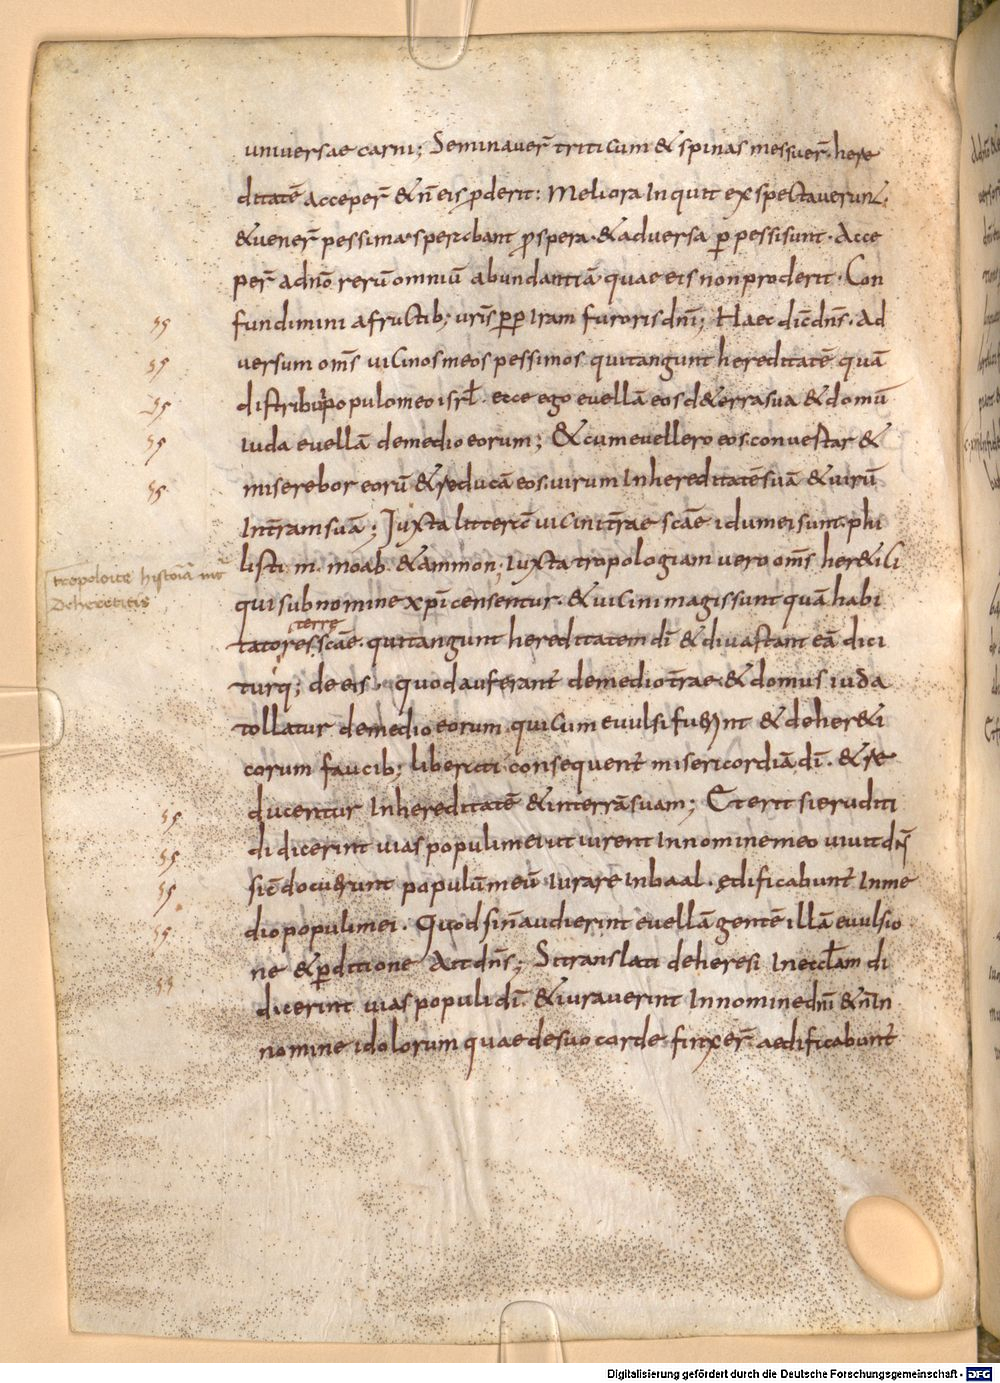 universae carni; Seminaver̄ triticum & spinas messuer̄. here
ditatē acceper̄ & n̄ eis ꝓderit: Meliora inquit exspectaverunt.
& vener̄ pessima. sperabant ꝓspera. & adversa ꝑpessi sunt. Acce
per̄ a dn̄o rerū omniū abundantiā quae eis non proderit. Con
fundimini a fructib; urīs ꝓpt iram furoris dn̄i; Haec dic̄ dn̄s. Ad
versum om̄s vicinos meos pessimos qui tangunt hereditatē quā
distribui populo meo isrl̄. ecce ego evellā eos de terra sua & domū
iuda evellā de medio eorum; & cum evellero eos. convertar &
miserebor eorū & reducā eos. virum in hereditatē suā & virū
in t̄ram suā; Iuxta litterā vicini t̄rae sc̄ae idumei sunt. phi
listiim. moab. & ammon; iuxta tropologiam vero om̄s her&ici
qui sub nomine xp̄i censentur. & vicini magis sunt quā habi
terre
tatores sc̄ae. qui tangunt hereditatem dī & divastant eā dici
turq; de eis. quod auferant̄ de medio t̄rae. & domus iuda
tollatur de medio eorum. qui cum evulsi fuerint & de her&i
corum faucib; liberati consequent̄ misericordiā dī. & re
ducentur in hereditatē & in terrā suam; Et erit si eruditi
didicerint vias populi mei ut iurent in nomine meo vivit dn̄s
sic̄ docuerunt populū meū iurare in baal. ędificabunt̄ in me
dio populi mei. Quod si n̄ audierint evellā gentē illā evulsio
ne & ꝑditione Ait dn̄s; Si translati de heresi in eccl̄am di
dicerint vias populi dī. & iuraverint in nomine dn̄i & n̄ in
nomine idolorum quae de suo corde finxer̄ aedificabunt̄
tropoloice historiā int̄
De hereticis
Digitalisierung gefördert durch die Deutsche Forschungsgemeinschaft - DFG